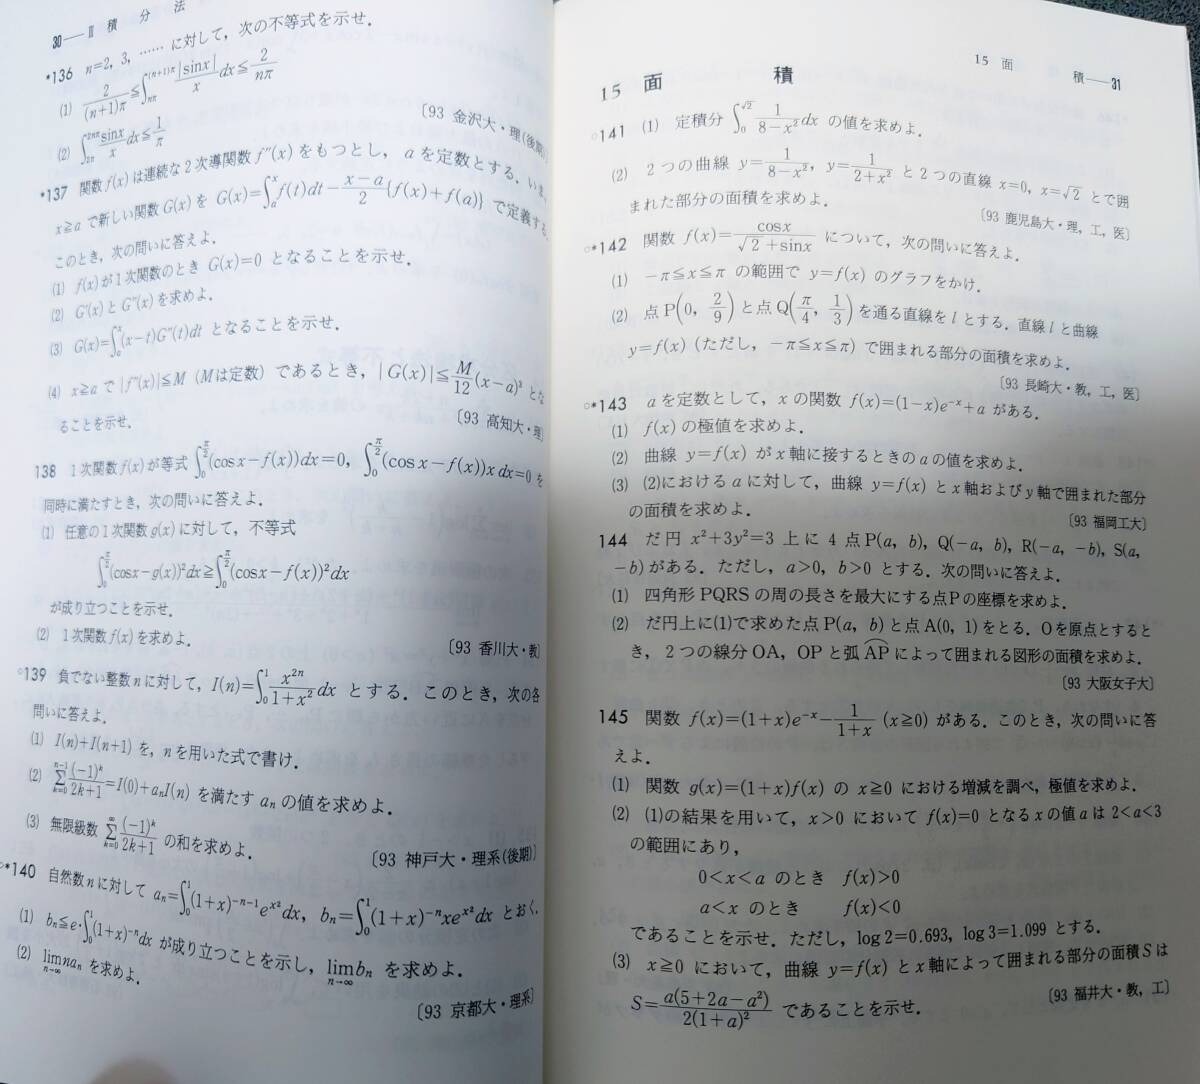 30——II 積 分 法
*136 n=2, 3, …… に対して，次の不等式を示せ．
(1) 2/((n+1)π)≦∫_{nπ}^{(n+1)π} |sinx|/x dx≦2/(nπ)
(2) ∫_{2π}^{2nπ} sinx/x dx≦1/π
〔93 金沢大・理(後期)〕
*137 関数 f(x) は連続な 2 次導関数 f″(x) をもつとし，a を定数とする．いま，
x≧a で新しい関数 G(x) を G(x)=∫_a^x f(t)dt−(x−a)/2{f(x)+f(a)} で定義する．
このとき，次の問いに答えよ．
(1) f(x) が 1 次関数のとき G(x)=0 となることを示せ．
(2) G′(x) と G″(x) を求めよ．
(3) G(x)=∫_a^x (x−t)G″(t)dt となることを示せ．
(4) x≧a で |f″(x)|≦M (M は定数) であるとき，|G(x)|≦M/12(x−a)³ とな
ることを示せ．
〔93 高知大・理〕
138 1 次関数 f(x) が等式 ∫_0^{π/2}(cosx−f(x))dx=0, ∫_0^{π/2}(cosx−f(x))x dx=0 を
同時に満たすとき，次の問いに答えよ．
(1) 任意の 1 次関数 g(x) に対して，不等式
∫_0^{π/2}(cosx−g(x))²dx≧∫_0^{π/2}(cosx−f(x))²dx
が成り立つことを示せ．
(2) 1 次関数 f(x) を求めよ．
〔93 香川大・教〕
○139 負でない整数 n に対して，I(n)=∫_0^1 x^{2n}/(1+x²) dx とする．このとき，次の各
問いに答えよ．
(1) I(n)+I(n+1) を，n を用いた式で書け．
(2) Σ_{k=0}^{n−1} (−1)^k/(2k+1)=I(0)+a_nI(n) を満たす a_n の値を求めよ．
(3) 無限級数 Σ_{k=0}^∞ (−1)^k/(2k+1) の和を求めよ．
〔93 神戸大・理系(後期)〕
○*140 自然数 n に対して a_n=∫_0^1(1+x)^{−n−1}e^{x²}dx, b_n=∫_0^1(1+x)^{−n}xe^{x²}dx とおく．
(1) b_n≦e・∫_0^1(1+x)^{−n}dx が成り立つことを示し，lim_{n→∞} b_n を求めよ．
(2) lim_{n→∞} na_n を求めよ．
〔93 京都大・理系〕
15 面 積——31
15 面 積
○141 (1) 定積分 ∫_0^{√2} 1/(8−x²) dx の値を求めよ．
(2) 2 つの曲線 y=1/(8−x²), y=1/(2+x²) と 2 つの直線 x=0, x=√2 とで囲
まれた部分の面積を求めよ．
〔93 鹿児島大・理，工，医〕
○*142 関数 f(x)=cosx/(√2+sinx) について，次の問いに答えよ．
(1) −π≦x≦π の範囲で y=f(x) のグラフをかけ．
(2) 点 P(0, 2/9) と点 Q(π/4, 1/3) を通る直線を l とする．直線 l と曲線
y=f(x) (ただし，−π≦x≦π) で囲まれる部分の面積を求めよ．
〔93 長崎大・教，工，医〕
○*143 a を定数として，x の関数 f(x)=(1−x)e^{−x}+a がある．
(1) f(x) の極値を求めよ．
(2) 曲線 y=f(x) が x 軸に接するときの a の値を求めよ．
(3) (2)における a に対して，曲線 y=f(x) と x 軸および y 軸で囲まれた部分
の面積を求めよ．
〔93 福岡工大〕
144 だ円 x²+3y²=3 上に 4 点 P(a, b), Q(−a, b), R(−a, −b), S(a,
−b) がある．ただし，a>0, b>0 とする．次の問いに答えよ．
(1) 四角形 PQRS の周の長さを最大にする点 P の座標を求めよ．
(2) だ円上に(1)で求めた点 P(a, b) と点 A(0, 1) をとる．O を原点とすると
き，2 つの線分 OA, OP と弧 AP によって囲まれる図形の面積を求めよ．
〔93 大阪女子大〕
145 関数 f(x)=(1+x)e^{−x}−1/(1+x) (x≧0) がある．このとき，次の問いに答
えよ．
(1) 関数 g(x)=(1+x)f(x) の x≧0 における増減を調べ，極値を求めよ．
(2) (1)の結果を用いて，x>0 において f(x)=0 となる x の値 a は 2<a<3
の範囲にあり，
0<x<a のとき f(x)>0
a<x のとき f(x)<0
であることを示せ．ただし，log2=0.693, log3=1.099 とする．
(3) x≧0 において，曲線 y=f(x) と x 軸によって囲まれる部分の面積 S は
S=a(5+2a−a²)/(2(1+a)²) であることを示せ．
〔93 福井大・教，工〕